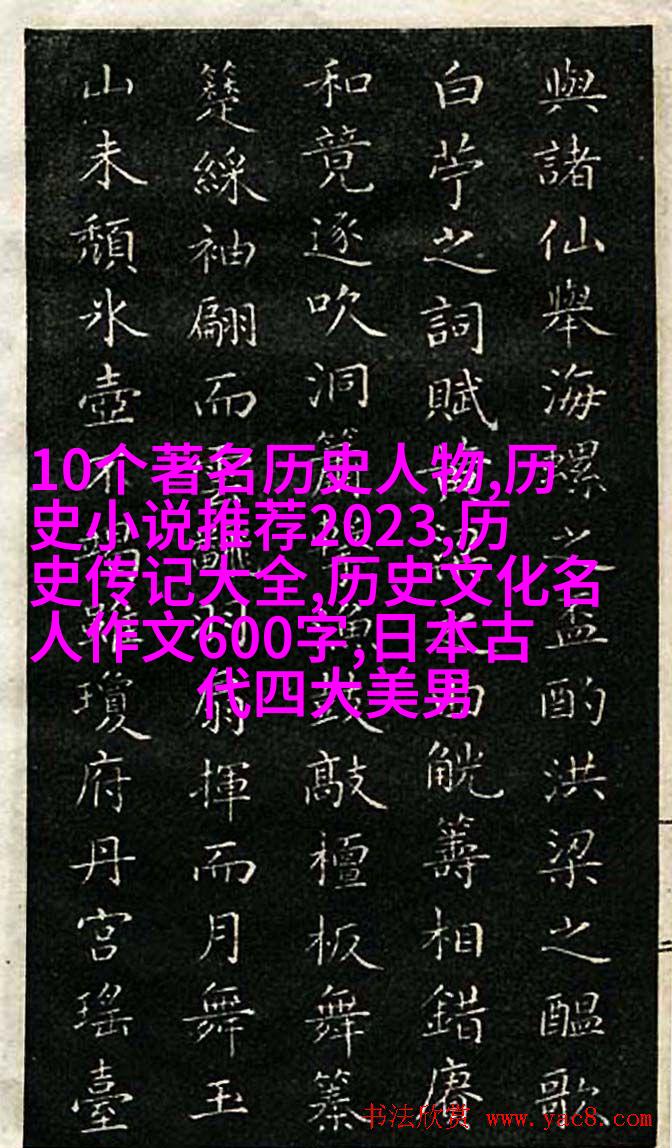 與諸仙舉海螺之盃酌洪梁之醞歌
白苧之詞賦之觥籌相錯賡
和竟逐吹洞鼓敲檀板舞
綵袖翩而雲揮而月舞玉
山未頹氷壺不雖瓊府丹宮瑤臺
10个著名历史人物,历
史小说推荐2023,历
史传记大全,历史文化名
人作文600字,日本古
代四大美男
书法欣赏 www.yac8.com